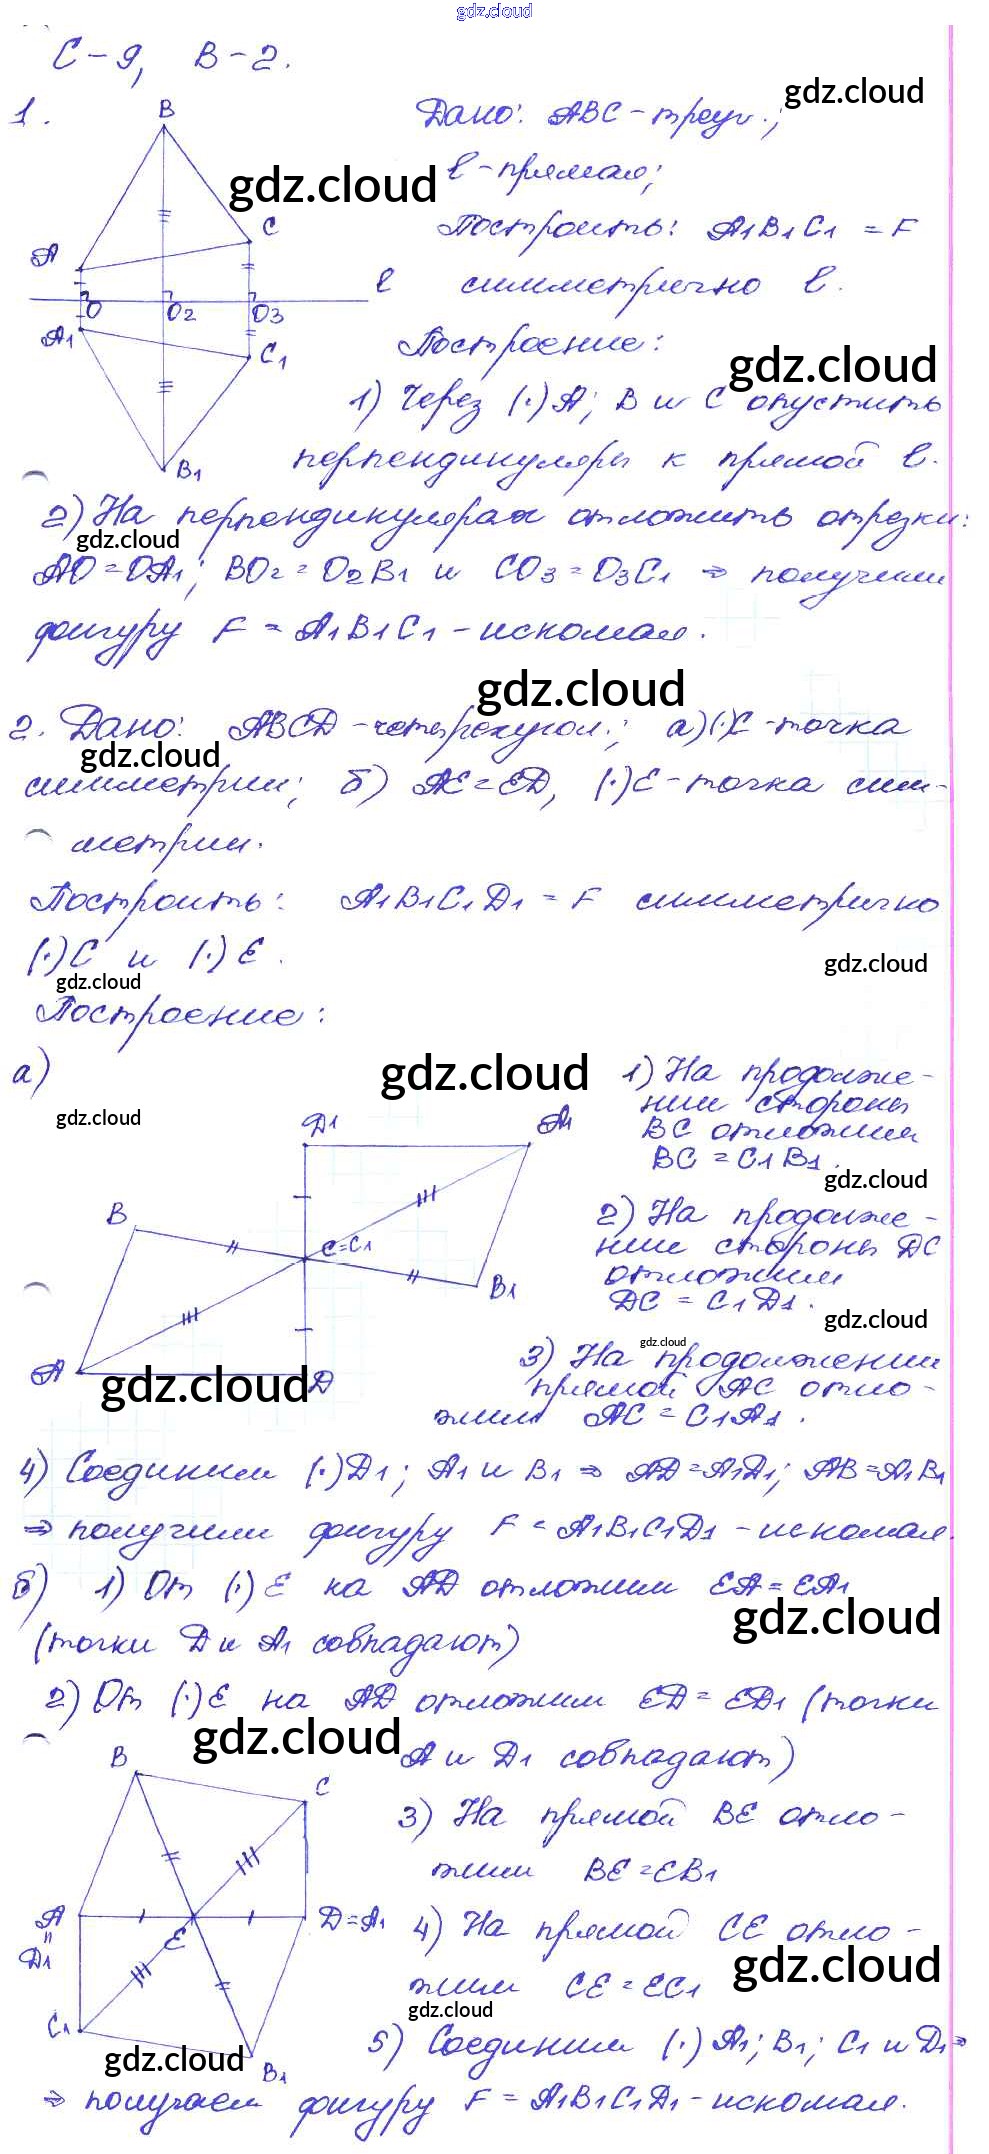 gdz.cloud
С-9, В-2.
gdz.cloud
1.
B
Дано: ABC-треуг.;
gdz.cloud
l-прямая;
C
Построить: A₁B₁C₁ = F
A
l
симметрично l.
O
O₂
O₃
A₁
C₁
Построение:
gdz.cloud
1) Через (·)A; B и C опустить
перпендикуляры к прямой l.
B₁
2) На перпендикулярах отложить отрезки:
gdz.cloud
AO=OA₁; BO₂=O₂B₁ и CO₃=O₃C₁ ⇒ получим
фигуру F = A₁B₁C₁-искомая.
gdz.cloud
2. Дано: ABCD-четырехугол.; а)(·)C-точка
gdz.cloud
симметрии; б) AE=ED, (·)E-точка сим-
метрии.
Построить: A₁B₁C₁D₁ = F симметрично
(·)C и (·)E.
gdz.cloud
gdz.cloud
Построение:
а)
gdz.cloud
gdz.cloud
D₁
A₁
B
C=C₁
B₁
A
D
gdz.cloud
1) На продолже-
нии стороны
BC отложим
BC = C₁B₁.
gdz.cloud
2) На продолже-
нии стороны DC
отложим
DC = C₁D₁.
gdz.cloud
gdz.cloud
3) На продолжении
прямой AC отло-
жим AC = C₁A₁.
4) Соединим (·)D₁; A₁ и B₁ ⇒ AD=A₁D₁; AB=A₁B₁
⇒ получим фигуру F = A₁B₁C₁D₁-искомая.
б) 1) От (·)E на AD отложим EA=EA₁
gdz.cloud
(точки D и A₁ совпадают)
2) От (·)E на AD отложим ED=ED₁ (точки
gdz.cloud
A и D₁ совпадают)
B
C
A
=
D₁
E
D=A₁
C₁
B₁
3) На прямой BE отло-
жим BE=EB₁
4) На прямой CE отло-
gdz.cloud
жим CE=EC₁
gdz.cloud
5) Соединим (·)A₁; B₁; C₁ и D₁⇒
gdz.cloud
⇒ получаем фигуру F = A₁B₁C₁D₁-искомая.